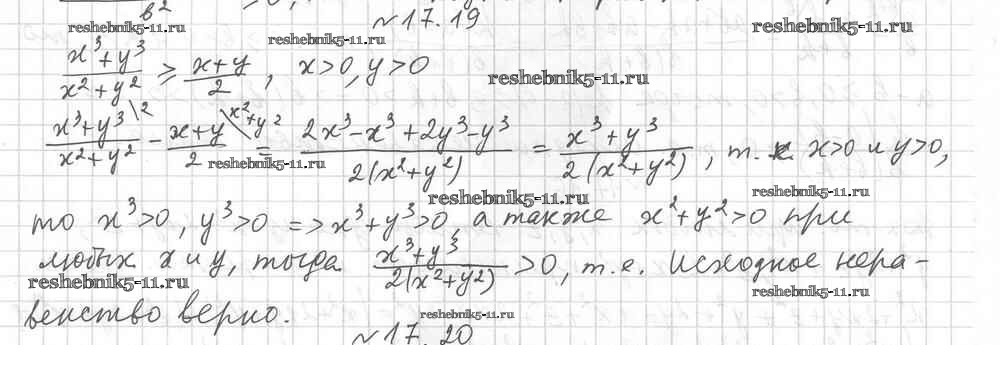 в²
№17.19
reshebnik5-11.ru reshebnik5-11.ru reshebnik5-11.ru
(x³+y³)/(x²+y²) ≥ (x+y)/2, x>0, y>0
reshebnik5-11.ru
(x³+y³)/(x²+y²) \2 - (x+y)/2 \x²+y² = (2x³-x³+2y³-y³)/(2(x²+y²)) = (x³+y³)/(2(x²+y²)), т.к. x>0 и y>0,
reshebnik5-11.ru reshebnik5-11.ru reshebnik5-11.ru
то x³>0, y³>0 => x³+y³>0, а также x²+y²>0 при
любых x и y, тогда (x³+y³)/(2(x²+y²)) >0, т.е. исходное нера-
reshebnik5-11.ru reshebnik5-11.ru
венство верно.
reshebnik5-11.ru
№17.20